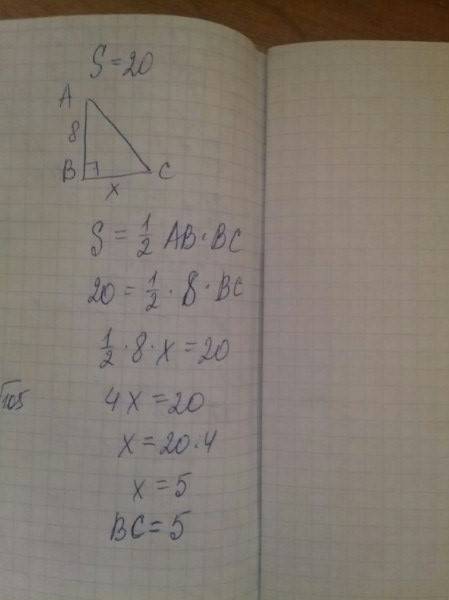 S=20
A
8
B
C
x
S = 1/2 AB·BC
20 = 1/2 · 8 · BC
1/2 · 8 · x = 20
√105
4x = 20
x = 20·4
x = 5
BC = 5